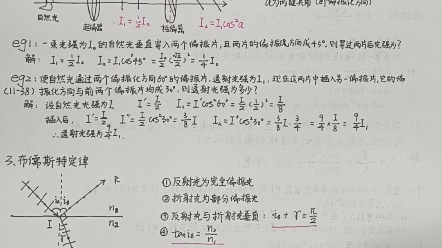 自然光
起偏器
I₁=½I₀
检偏器
I₂=I₁cos²α
eg1:一束光强为I₀的自然光垂直穿入两个偏振片,且两片的偏振化方向成45°,则穿过两片后光强为?
解: I₁=½I₀ I₂=I₁cos²45°=I₀/2(√2/2)²=¼I₀
eg2:使自然光通过两个偏振化方向60°的偏振片,透射光强为I₁,现在这两片中插入另一偏振片,它的偏
(11-38) 振化方向与前两个偏振片均成30°,则透射光强为多少?
解:设自然光光强为I I'=I/2 I₁=I'cos²60°=I/2(½)²=I/8
插入后, I'=I/2 I''=I/2cos²30°=3/8I I₂=I''cos²30°=3/8I·3/4=9/4×I/8=9/4I₁
∴透射光强为9/4I₁.
3.布儒斯特定律
R
I
n₁
n₂
r
①反射光为完全偏振光
②折射光为部分偏振光
③反射光与折射光垂直: i₀+γ=π/2
④tani₀=n₂/n₁